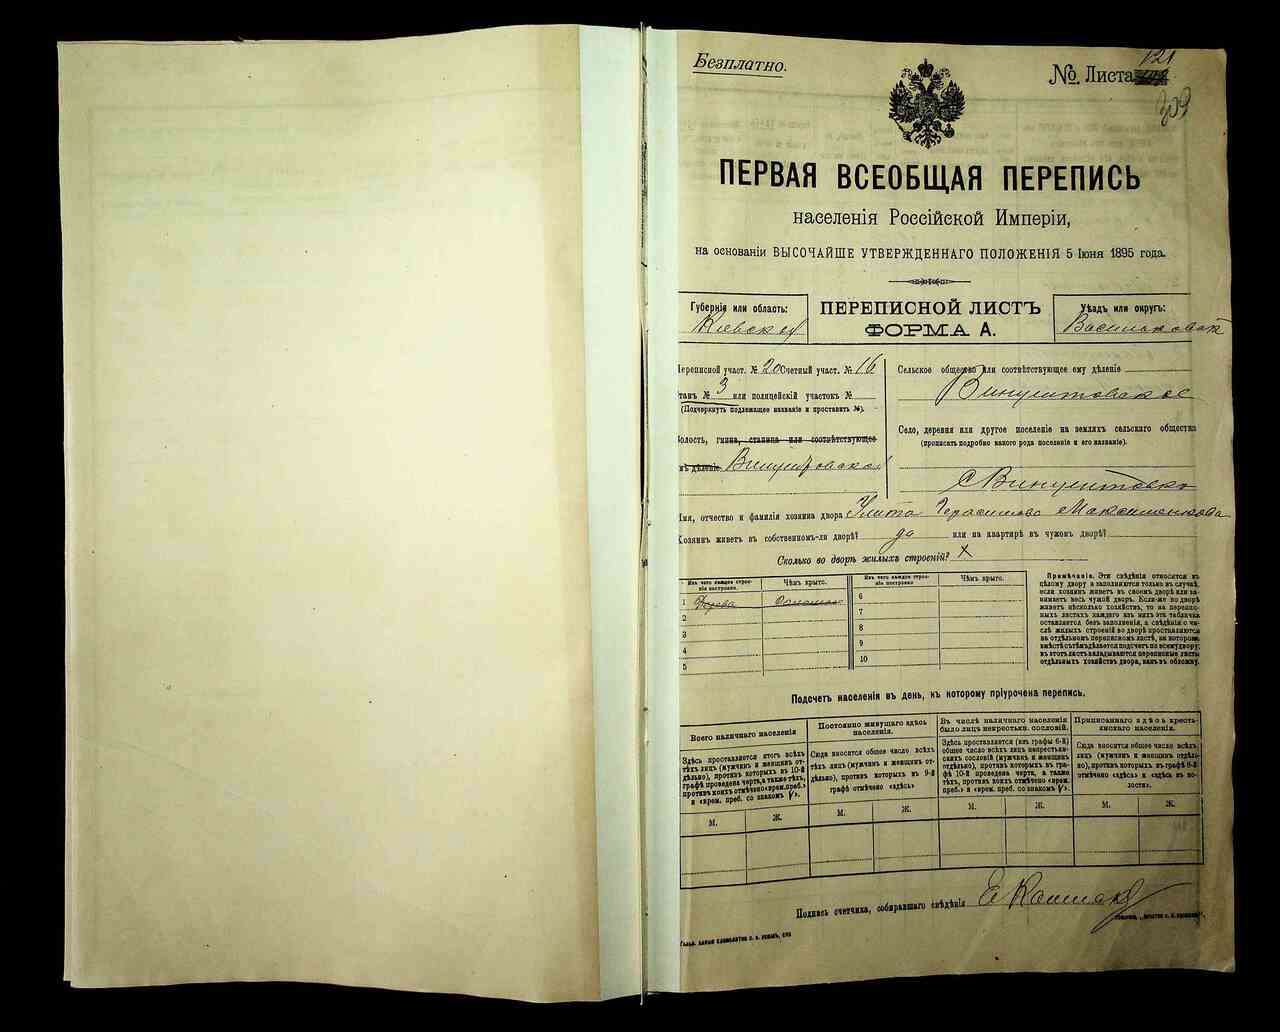 Безплатно.
№ Листа 121
309
ПЕРВАЯ ВСЕОБЩАЯ ПЕРЕПИСЬ
населенія Россійской Имперіи,
на основаніи ВЫСОЧАЙШЕ УТВЕРЖДЕННАГО ПОЛОЖЕНІЯ 5 Іюня 1895 года.
Губернія или область:
Кіевская
ПЕРЕПИСНОЙ ЛИСТЪ
ФОРМА А.
Уѣздъ или округъ:
Васильковскій
Переписной участ. № 20 Счетный участ. № 16
Станъ № 3 или полицейскій участокъ №
(Подчеркнуть подлежащее названіе и проставить №).
Волость, гмина, станица или соотвѣтствующее
имъ дѣленіе
Сельское общество или соотвѣтствующее ему дѣленіе
Село, деревня или другое поселеніе на земляхъ сельскаго общества
(прописать подробно какого рода поселеніе и его названіе).
Имя, отчество и фамилія хозяина двора Улита Герасимова Максименкова
Хозяинъ живетъ въ собственномъ-ли дворѣ? да или на квартирѣ въ чужомъ дворѣ?
Сколько во дворѣ жилыхъ строеній? X
Изъ чего каждое строеніе построено.
Чѣмъ крыто.
Изъ чего каждое строеніе построено.
Чѣмъ крыто.
1 Дерева Соломою
2
3
4
5
6
7
8
9
10
Примѣчаніе. Эти свѣдѣнія относятся къ
цѣлому двору и заполняются только въ случаѣ,
если хозяинъ живетъ въ своемъ дворѣ или занимаетъ
весь чужой дворъ. Если-же во дворѣ
живетъ нѣсколько хозяйствъ, то на переписныхъ
листахъ каждаго изъ нихъ эта табличка
оставляется безъ заполненія, а свѣдѣнія о числѣ
жилыхъ строеній во дворѣ проставляются
на отдѣльномъ переписномъ листѣ, на которомъ
вмѣстѣ съ тѣмъ дѣлается подсчетъ по всему двору;
въ этотъ листъ вкладываются переписные листы
отдѣльныхъ хозяйствъ двора, какъ въ обложку.
Подсчетъ населенія въ день, къ которому пріурочена перепись.
Всего наличнаго населенія
Здѣсь проставляется итогъ всѣхъ
тѣхъ лицъ (мужчинъ и женщинъ отдѣльно),
противъ которыхъ въ 10-й
графѣ проведена черта, а также тѣхъ,
противъ коихъ отмѣчено «врем. преб.»
и «врем. преб. со знакомъ V».
М. Ж.
Постоянно живущаго здѣсь
населенія.
Сюда вносится общее число всѣхъ
тѣхъ лицъ (мужчинъ и женщинъ отдѣльно),
противъ которыхъ въ 9-й
графѣ отмѣчено «здѣсь»
М. Ж.
Въ числѣ наличнаго населенія
было лицъ некрестьянск. сословій.
Здѣсь проставляется (изъ графы 6-й)
общее число всѣхъ лицъ некрестьянскихъ
сословій (мужчинъ и женщинъ
отдѣльно), противъ которыхъ въ графѣ
10-й проведена черта, а также
тѣхъ, противъ коихъ отмѣчено «врем.
преб.» и «врем. преб. со знакомъ V».
М. Ж.
Приписаннаго здѣсь крестьянскаго
населенія.
Сюда вносится общее число всѣхъ
лицъ (мужчинъ и женщинъ отдѣльно),
противъ которыхъ въ графѣ 8-й
отмѣчено «здѣсь» и «здѣсь въ волости».
М. Ж.
Подпись счетчика, собиравшаго свѣдѣнія